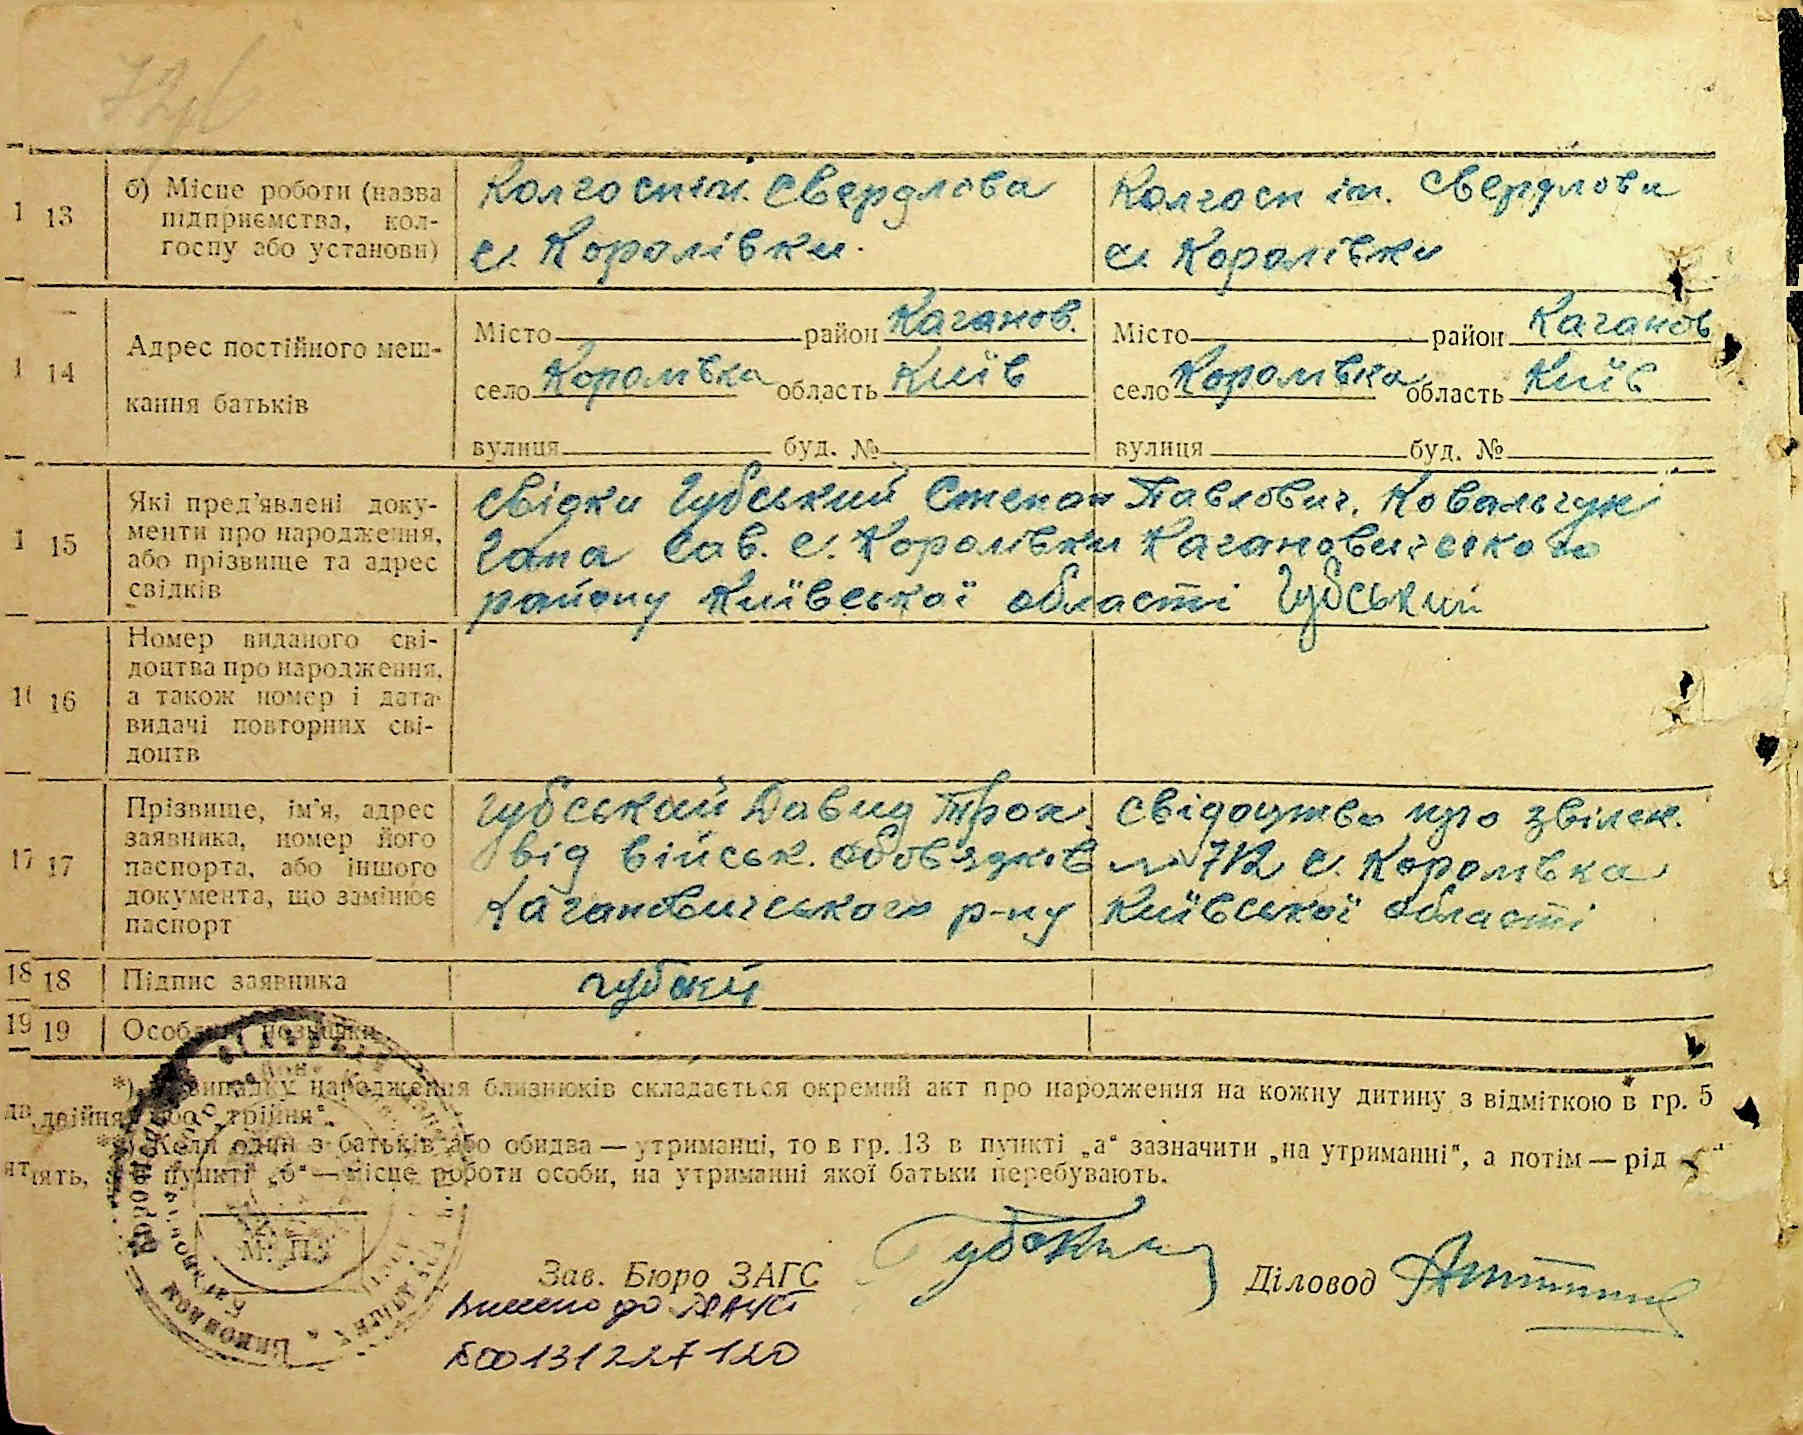 13 б) Місце роботи (назва
підприємства, кол-
госпу або установи)
Колгосп ім. Свердлова
с. Королівки.
Колгосп ім. Свердлови
с. Королівки
14 Адрес постійного меш-
кання батьків
Місто район Каганов.
село Королівка область Київ
вулиця буд. №
Місто район Каганов
село Королівка область Київ
вулиця буд. №
15 Які пред'явлені доку-
менти про народження,
або прізвище та адрес
свідків
свідки Губський Степан Павлович, Ковальчук
Гапа Сав. с. Королівки Кагановичського
району Київської області Губський
16 Номер виданого сві-
доцтва про народження,
а також номер і дата
видачі повторних сві-
доцтв
17 Прізвище, ім'я, адрес
заявника, номер його
паспорта, або іншого
документа, що замінює
паспорт
Губський Давид Трох. свідоцтво про звільн.
від військ. обов'язків № 712 с. Королівка
Кагановичського р-ну Київської області
18 Підпис заявника
Губский
19 Особливі позначки
*) У випадку народження близнюків складається окремий акт про народження на кожну дитину з відміткою в гр. 5
„двійня" або „трійня".
**) Коли один з батьків або обидва — утриманці, то в гр. 13 в пункті „а" зазначити „на утриманні", а потім — рід
пункті „б" — місце роботи особи, на утриманні якої батьки перебувають.
М. П.
Зав. Бюро ЗАГС
Діловод
Внесено до
00131227120